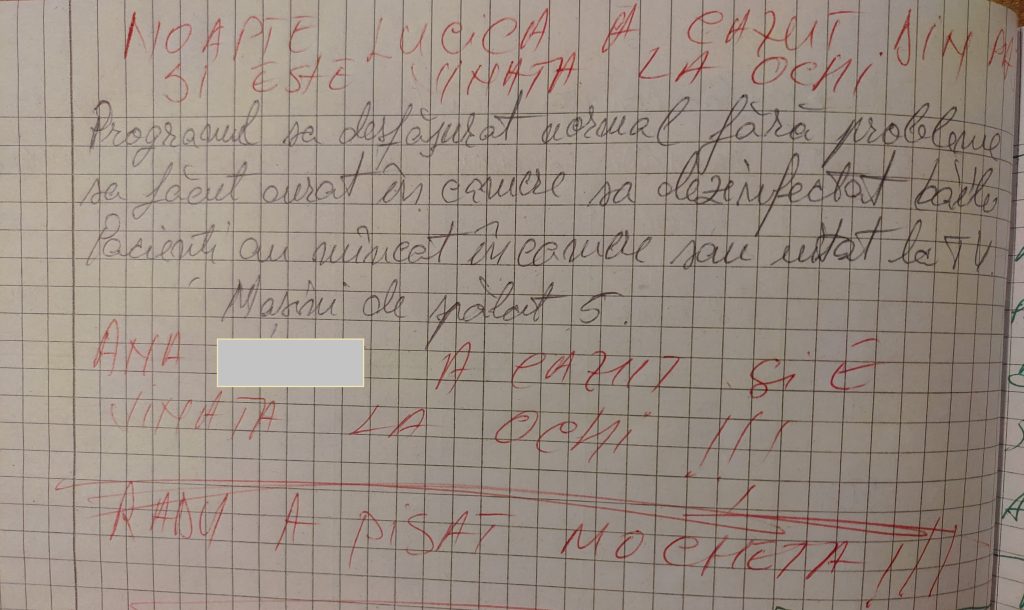 NOAPTE LUCICA A CAZUT DIN
SI ESTE VINATA LA OCHI
Programul sa desfăşurat normal fără probleme
sa făcut curat în camere sa dezinfectat băile
Pacienti au mîncat în camere sau uitat la TV.
Masini de spălat 5.
ANA A CAZUT Si E
VINATA LA OCHI !!!
RADU A PiSAT MOCHETA !!!